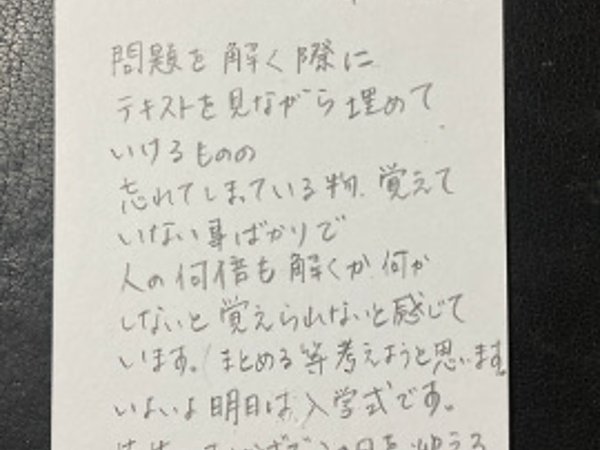 問題を解く際に
テキストを見ながら埋めて
いけるものの
忘れてしまっている物、覚えて
いない事ばかりで
人の何倍も解くか、何か
しないと覚えられないと感じて
います。(まとめる等考えようと思います。
いよいよ明日は、入学式です。